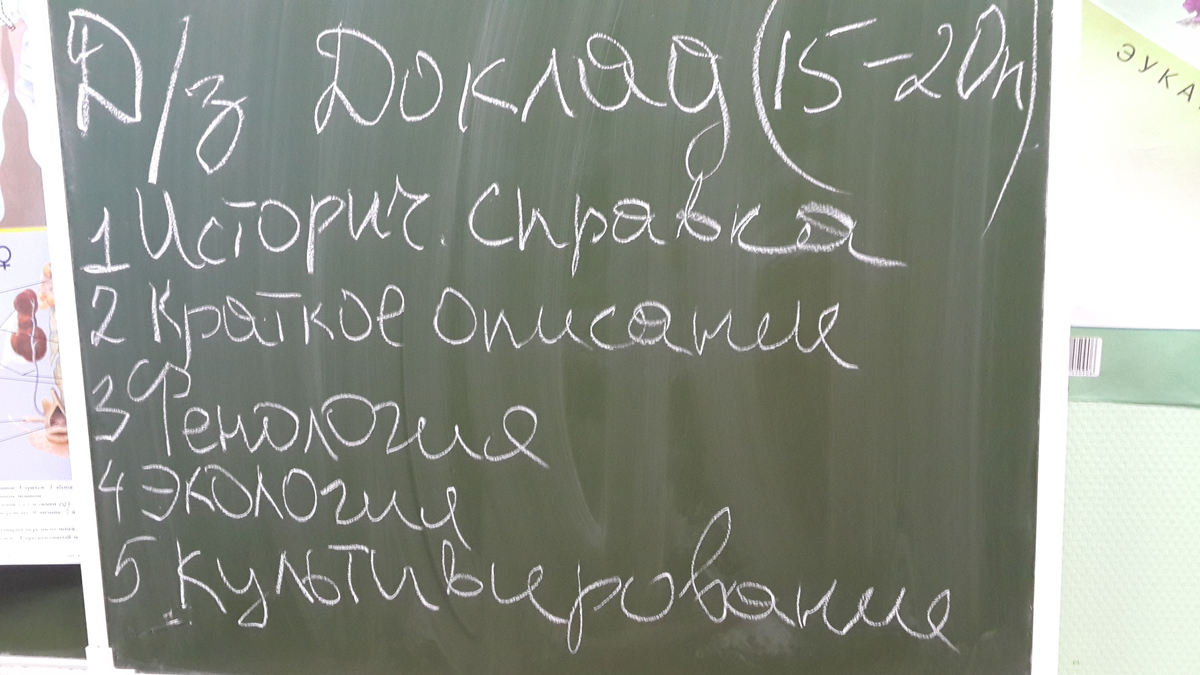 Д/з Доклад (15-20п)
1 Историч. справка
2 Краткое описание
3 Фенология
4 Экология
5 Культивирование
ЭУКА